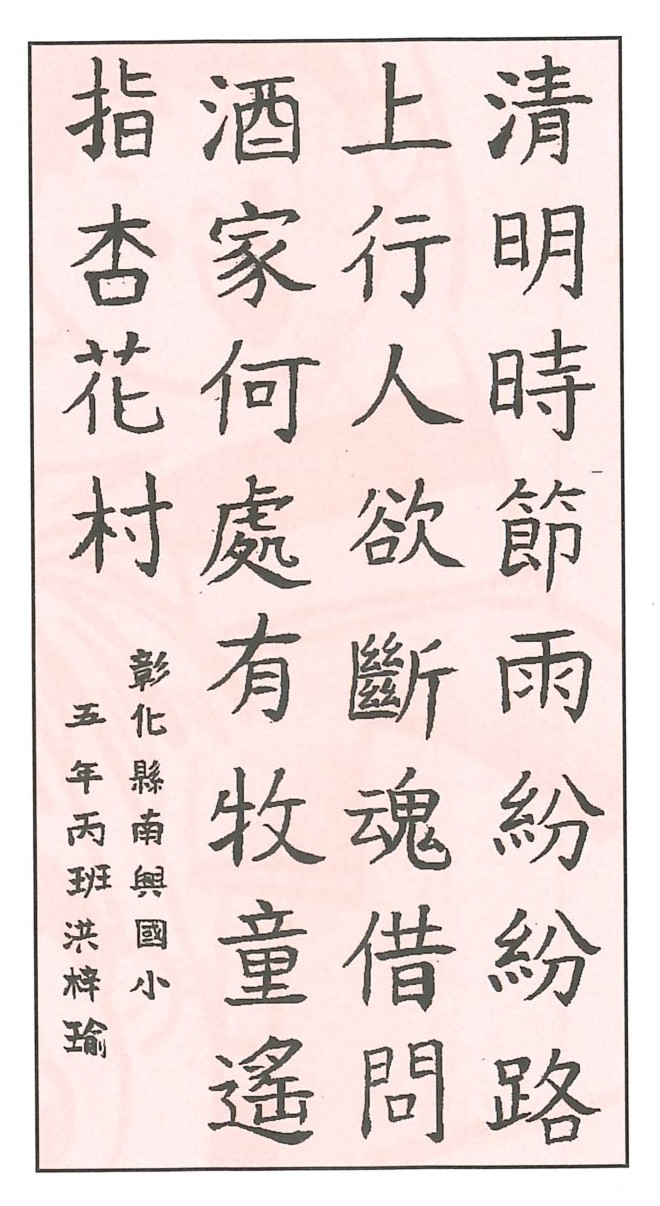 清明時節雨紛紛路
上行人欲斷魂借問
酒家何處有牧童遙
指杏花村
彰化縣南興國小
五年丙班洪梓瑜